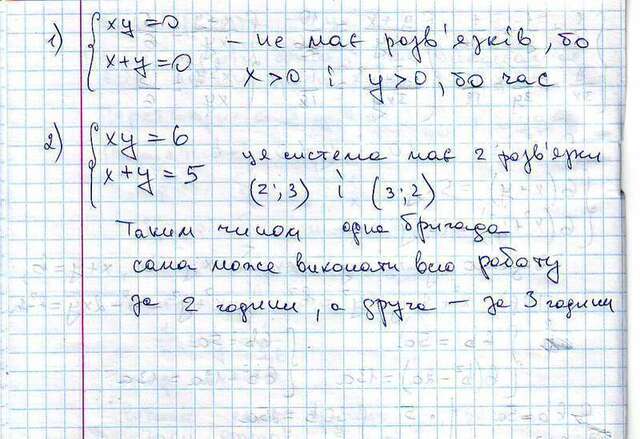 1) { xy = 0
x+y = 0 – не має розв'язків, бо
x > 0 і y > 0, бо час
2) { xy = 6
x+y = 5 ця система має 2 розв'язки
(2; 3) і (3; 2)
Таким чином одна бригада
сама може виконати всю роботу
за 2 години, а друга – за 3 години